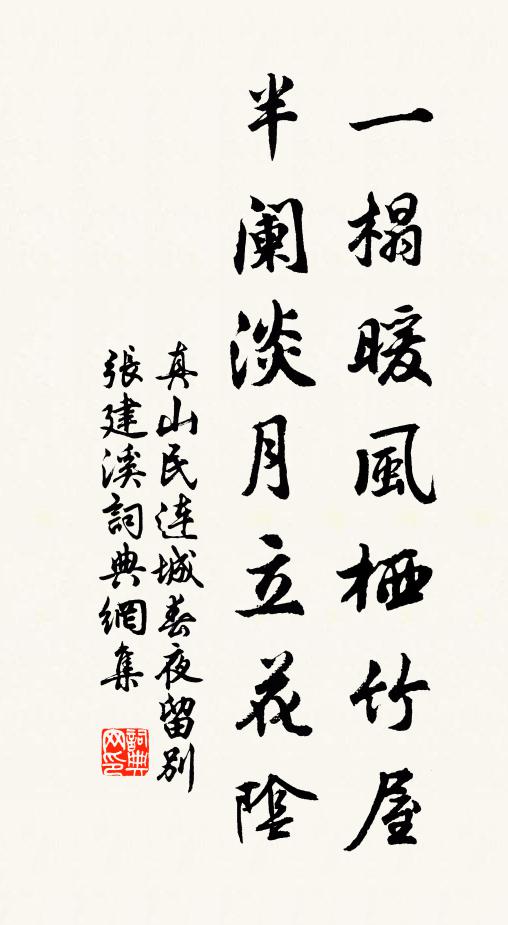 一榻暖風栖竹屋
半阑淡月立花陰
真山民连城春夜留别
張建溪詞典網集
詞典网印